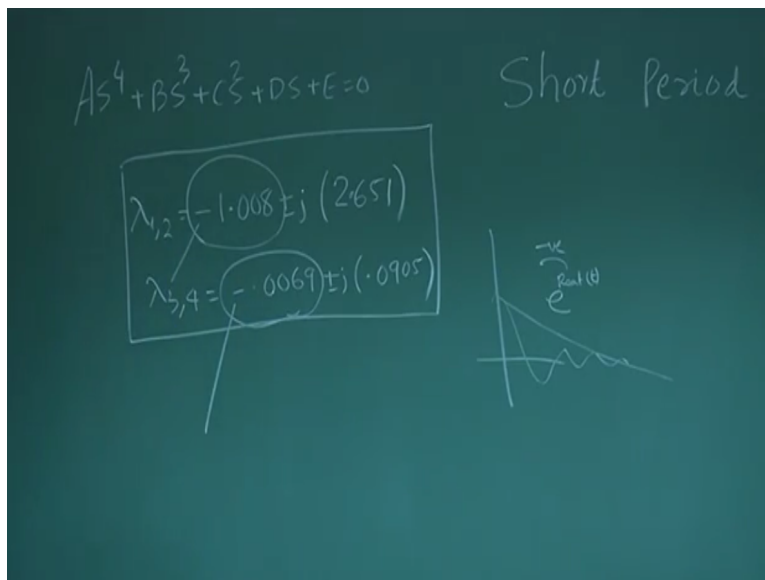 AS⁴+BS³+CS²+DS+E=0
Short Period
λ₁,₂=-1.008±j(2.651)
λ₃,₄=-.0069±j(.0905)
-ve
e^Real(t)